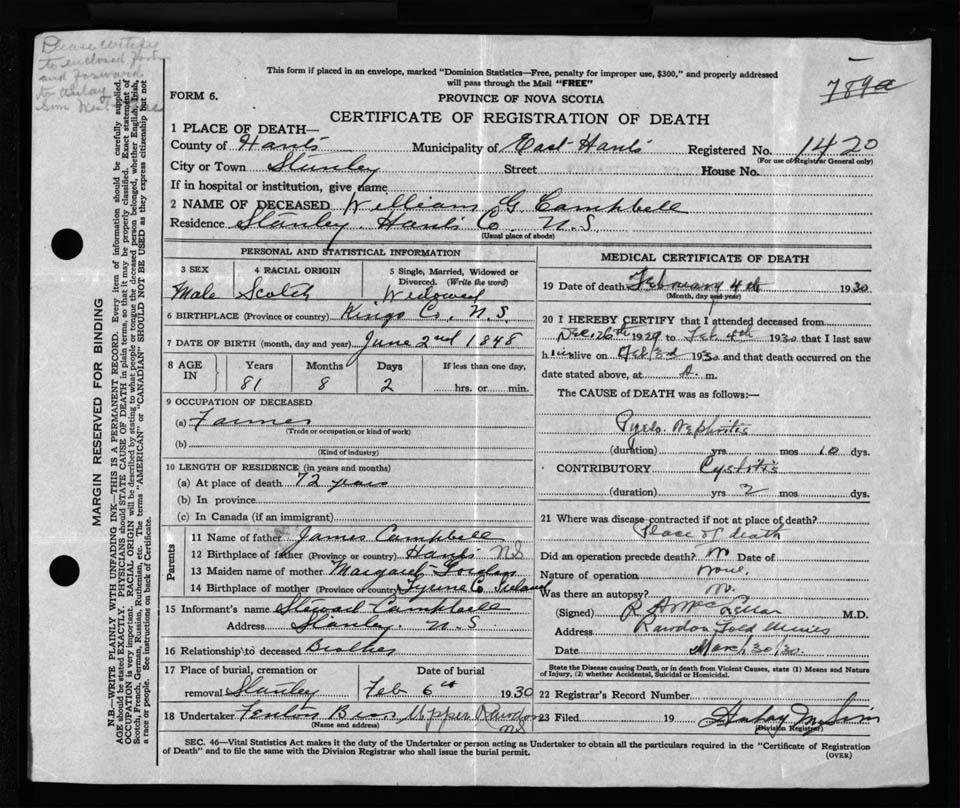 Please certify
to enclosed form
and forward
to
789a
This form if placed in an envelope, marked "Dominion Statistics—Free, penalty for improper use, $300," and properly addressed
will pass through the Mail "FREE"
FORM 6.
PROVINCE OF NOVA SCOTIA
CERTIFICATE OF REGISTRATION OF DEATH
1 PLACE OF DEATH—
County of Hants Municipality of East Hants Registered No. 1420
(For use of Registrar General only)
City or Town Stanley Street House No.
If in hospital or institution, give name
2 NAME OF DECEASED William G Campbell
Residence Stanley Hants Co. N.S.
(Usual place of abode)
PERSONAL AND STATISTICAL INFORMATION
3 SEX 4 RACIAL ORIGIN 5 Single, Married, Widowed or Divorced. (Write the word)
Male Scotch Widowed
6 BIRTHPLACE (Province or country) Kings Co, N.S.
7 DATE OF BIRTH (month, day and year) June 2nd 1848
8 AGE IN Years Months Days If less than one day,
81 8 2 hrs. or min.
9 OCCUPATION OF DECEASED
(a) Farmer
(Trade or occupation or kind of work)
(b)
(Kind of industry)
10 LENGTH OF RESIDENCE (in years and months)
(a) At place of death 72 years
(b) In province
(c) In Canada (if an immigrant)
Parents
11 Name of father James Campbell
12 Birthplace of father (Province or country) Hants NS
13 Maiden name of mother Margaret Gordon
14 Birthplace of mother (Province or country) Tyrone Co Ireland
15 Informant's name Steward Campbell
Address Stanley. N.S.
16 Relationship to deceased Brother
17 Place of burial, cremation or Date of burial
removal Stanley Feb 6th 1930
18 Undertaker Fenton Bros Upper Rawdon
(Name and address) NS
MEDICAL CERTIFICATE OF DEATH
19 Date of death February 4th 1930
(Month, day and year)
20 I HEREBY CERTIFY that I attended deceased from
Dec. 26th 1929 to Feb 4th 1930 that I last saw
him alive on Feb 3rd 1930 and that death occurred on the
date stated above, at A. m.
The CAUSE of DEATH was as follows:—
Pyelo. Nephritis
(duration) yrs mos 10 dys.
CONTRIBUTORY Cystitis
(duration) yrs 2 mos dys.
21 Where was disease contracted if not at place of death?
Place of death
Did an operation precede death? No Date of
Nature of operation None.
Was there an autopsy? No.
(Signed) R. A. M.D.
Address Rawdon Gold Mines
Date March 30/30.
State the Disease causing Death, or in death from Violent Causes, state (1) Means and Nature
of Injury, (2) whether Accidental, Suicidal or Homicidal.
22 Registrar's Record Number
23 Filed 19
(Division Registrar)
SEC. 46—Vital Statistics Act makes it the duty of the Undertaker or person acting as Undertaker to obtain all the particulars required in the "Certificate of Registration
of Death" and to file the same with the Division Registrar who shall issue the burial permit.
(OVER)
MARGIN RESERVED FOR BINDING
N.B.—WRITE PLAINLY WITH UNFADING INK—THIS IS A PERMANENT RECORD. Every item of information should be carefully supplied.
AGE should be stated EXACTLY. PHYSICIANS should STATE CAUSE OF DEATH in plain terms, so that it may be properly classified. Exact statement of
OCCUPATION is very important. RACIAL ORIGIN will be described by stating to what people or tongue the deceased person belonged, whether English, Irish,
Scotch, French, German, Russian, Ruthenian, etc. The terms "AMERICAN" or "CANADIAN" SHOULD NOT BE USED as they express citizenship but not
a race or people. See instructions on back of Certificate.